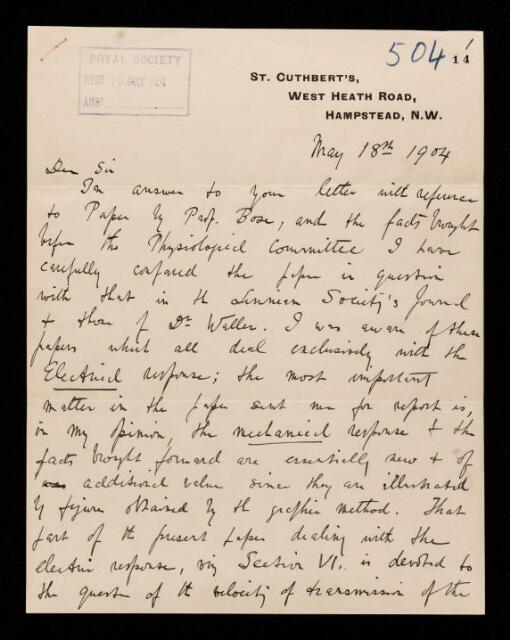 504
1/14
ROYAL SOCIETY
REC 19 MAY 1904
ANS
ST. CUTHBERT'S,
WEST HEATH ROAD,
HAMPSTEAD, N.W.
May 18th 1904
Dear Sir
In answer to your letter with reference
to Paper by Prof. Bose, and the facts brought
before the Physiological Committee I have
carefully compared the paper in question
with that in the Linnean Society's Journal
& those of Dr Waller. I was aware of these
papers which all deal exclusively with the
Electrical response; the most important
matter in the paper sent me for report is,
in my opinion, the mechanical response & the
facts brought forward are essentially new & of
additional value since they are illustrated
by figures obtained by the graphic method. That
part of the present paper dealing with the
electric response, viz Section VI. is devoted to
the question of the velocity of transmission of the